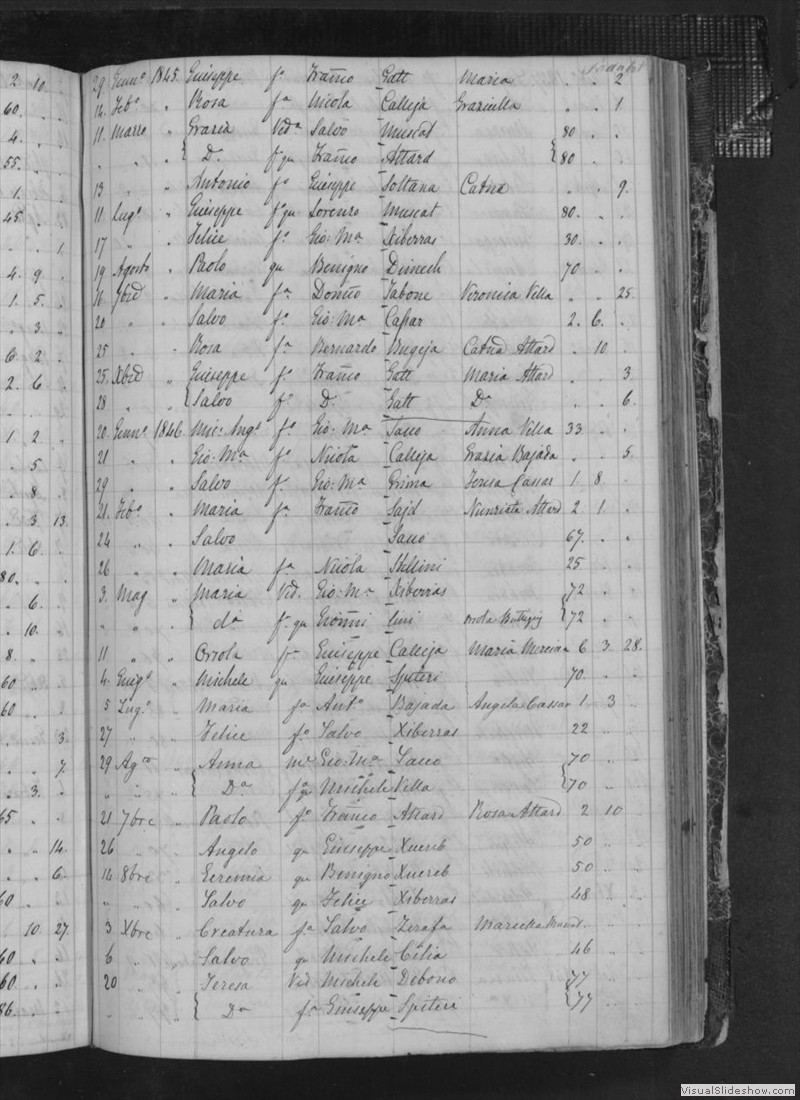 2 10
60.
4.
55.
1.
45.
1.
4. 9
1. 5.
3.
6 2
2. 6
1. 2
5
8
3. 13
1. 6
80.
6
10
8
60
60
3
7
3
65
14
6
60
10 27
60
60
86.
29 Genn° 1845 Giuseppe f° Franco Gatt Maria . . 2
14 Feb° " Rosa fa Nicola Calleja Graziella . . 1
11 Marzo " Grazia Vida Salvo Muscat 80 . .
" " { Da f qu Franco Attard {80 . .
13 " " Antonio f° Giuseppe Soltana Catna . . 9.
11 Lug° " Giuseppe f qu Lorenzo Muscat 80. . .
17 " " Felice f° Gio: Ma Xiberras 30. . .
19 Agosto " Paolo qu Benigno Dimech 70 . .
11 7bre " Maria fa Domco Tabone Veronica Vella . . 25.
20 " Salvo f° Gio: Ma Cassar 2. 6. .
25 " Rosa fa Bernardo Bugeja Catna Attard . 10 .
25. Xbre " Giuseppe f° Franco Gatt Maria Attard . . 3
28 " " { Salvo f° Do Gatt Da . . 6.
20. Genn° 1846. Mic: Ang° f° Gio: Ma Sacco Anna Vella 33. . .
21 " " Gio: Ma f° Nicola Calleja Grazia Bajada . . 5.
29 " " Salvo f° Gio: Ma Grima Teresa Cassar 1 8 .
21. Feb° " Maria fa Franco Said Nunziata Attard 2 1 .
24 " " Salvo Sacco 67. . .
26 " " Maria fa Nicola Stellini 25 . .
3. Mag " Maria Vid. Gio: Ma Xiberras 72 . .
" " " { da f qu Giovnni {72 . .
11 " " Orsola fa Giuseppe Calleja Maria 6 3 28.
4 Giug° " Michele qu Giuseppe Spiteri 70. . .
5 Lug° " Maria fa Anto Bajada Angela Cassar 1 3 ..
27 " " Felice f° Salvo Xiberras 22 .. ..
29 Agto " Anna Gio: Ma Sacco 70 .. ..
" " " { Da fa qu Michele Vella {70 .. ..
21 7bre " Paolo f° Franco Attard Rosa Attard 2 10
26 " " Angelo qu Giuseppe Xuereb 50 .. ..
14 8bre " Geremia qu Benigno Xuereb 50 .. ..
" " " Salvo qu Felice Xiberras 48 .. ..
3 Xbre " Creatura fa Salvo Zerafa
6 " " Salvo qu Michele Cilia 46 .. ..
20 " " Teresa Vid Michele Debono 77 .. ..
" " " { Da fa Giuseppe Spiteri {77 .. ..
VisualSlideshow.com